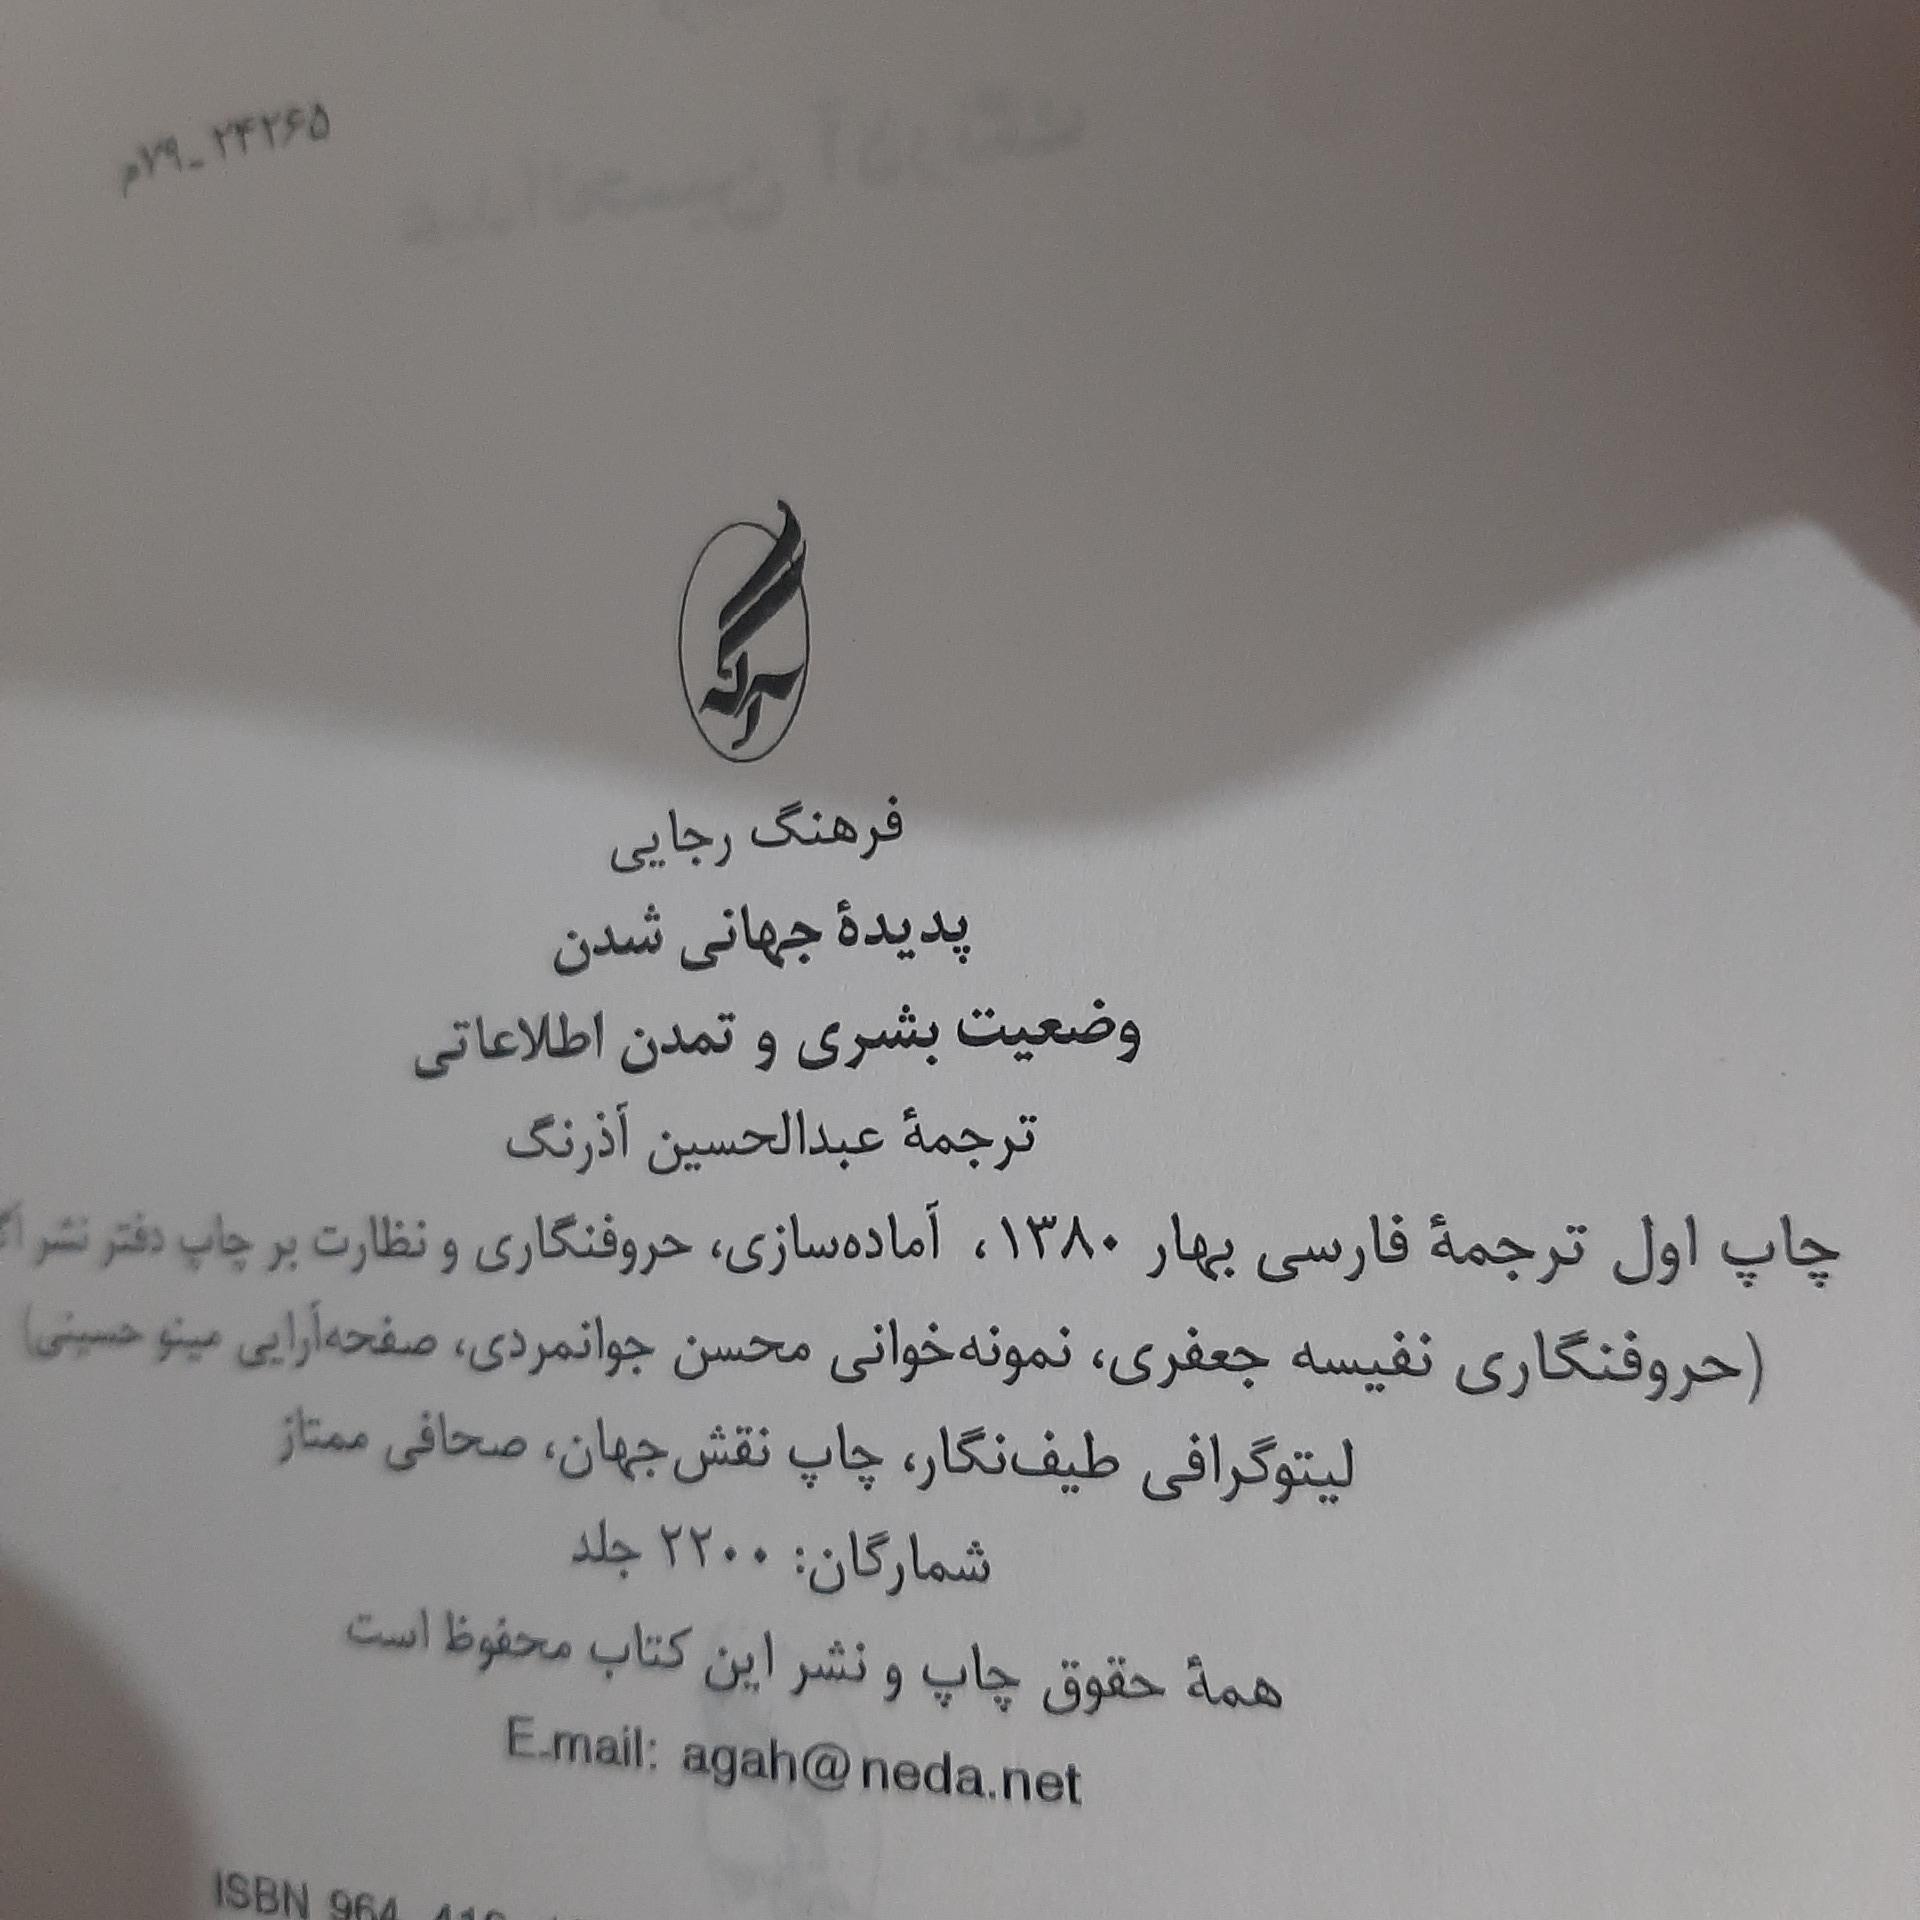 ۷۹ـ۲۴۲۶۵م
فرهنگ رجایی
پدیدهٔ جهانی شدن
وضعیت بشری و تمدن اطلاعاتی
ترجمهٔ عبدالحسین آذرنگ
چاپ اول ترجمهٔ فارسی بهار ۱۳۸۰، آماده‌سازی، حروفنگاری و نظارت بر چاپ دفتر نشر
(حروفنگاری نفیسه جعفری، نمونه‌خوانی محسن جوانمردی، صفحه‌آرایی مینو حسینی)
لیتوگرافی طیف‌نگار، چاپ نقش‌جهان، صحافی ممتاز
شمارگان: ۲۲۰۰ جلد
همهٔ حقوق چاپ و نشر این کتاب محفوظ است
E.mail: agah@neda.net
ISBN 964